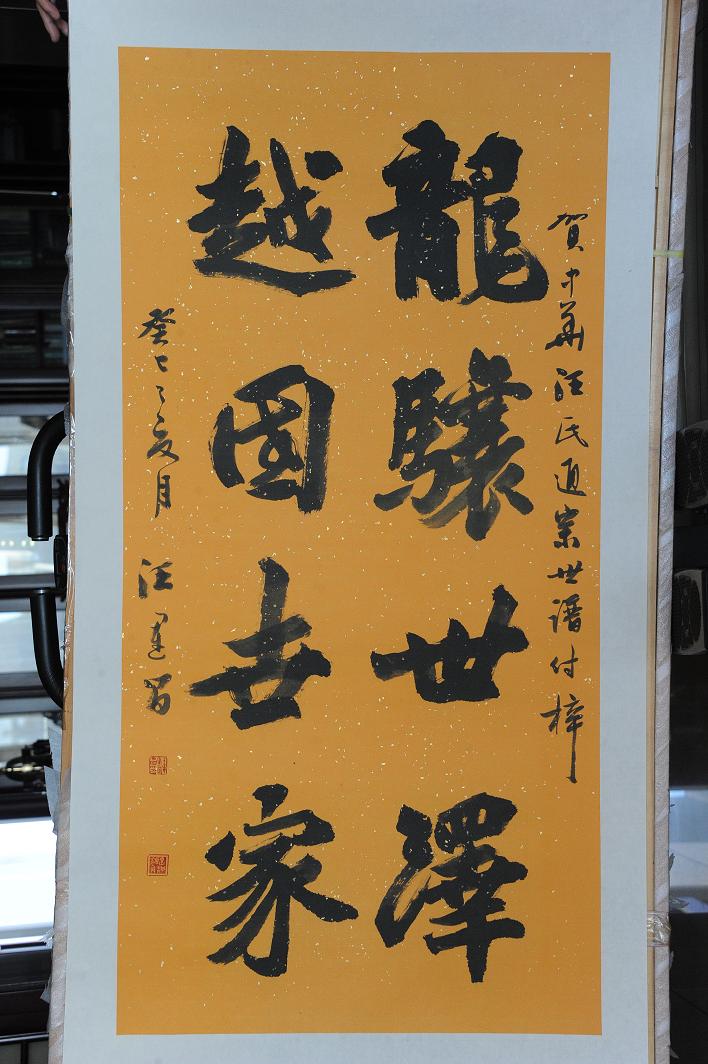 賀中華汪氏通宗世譜付梓
龍驤世澤
越國世家
癸巳之夏月 汪建